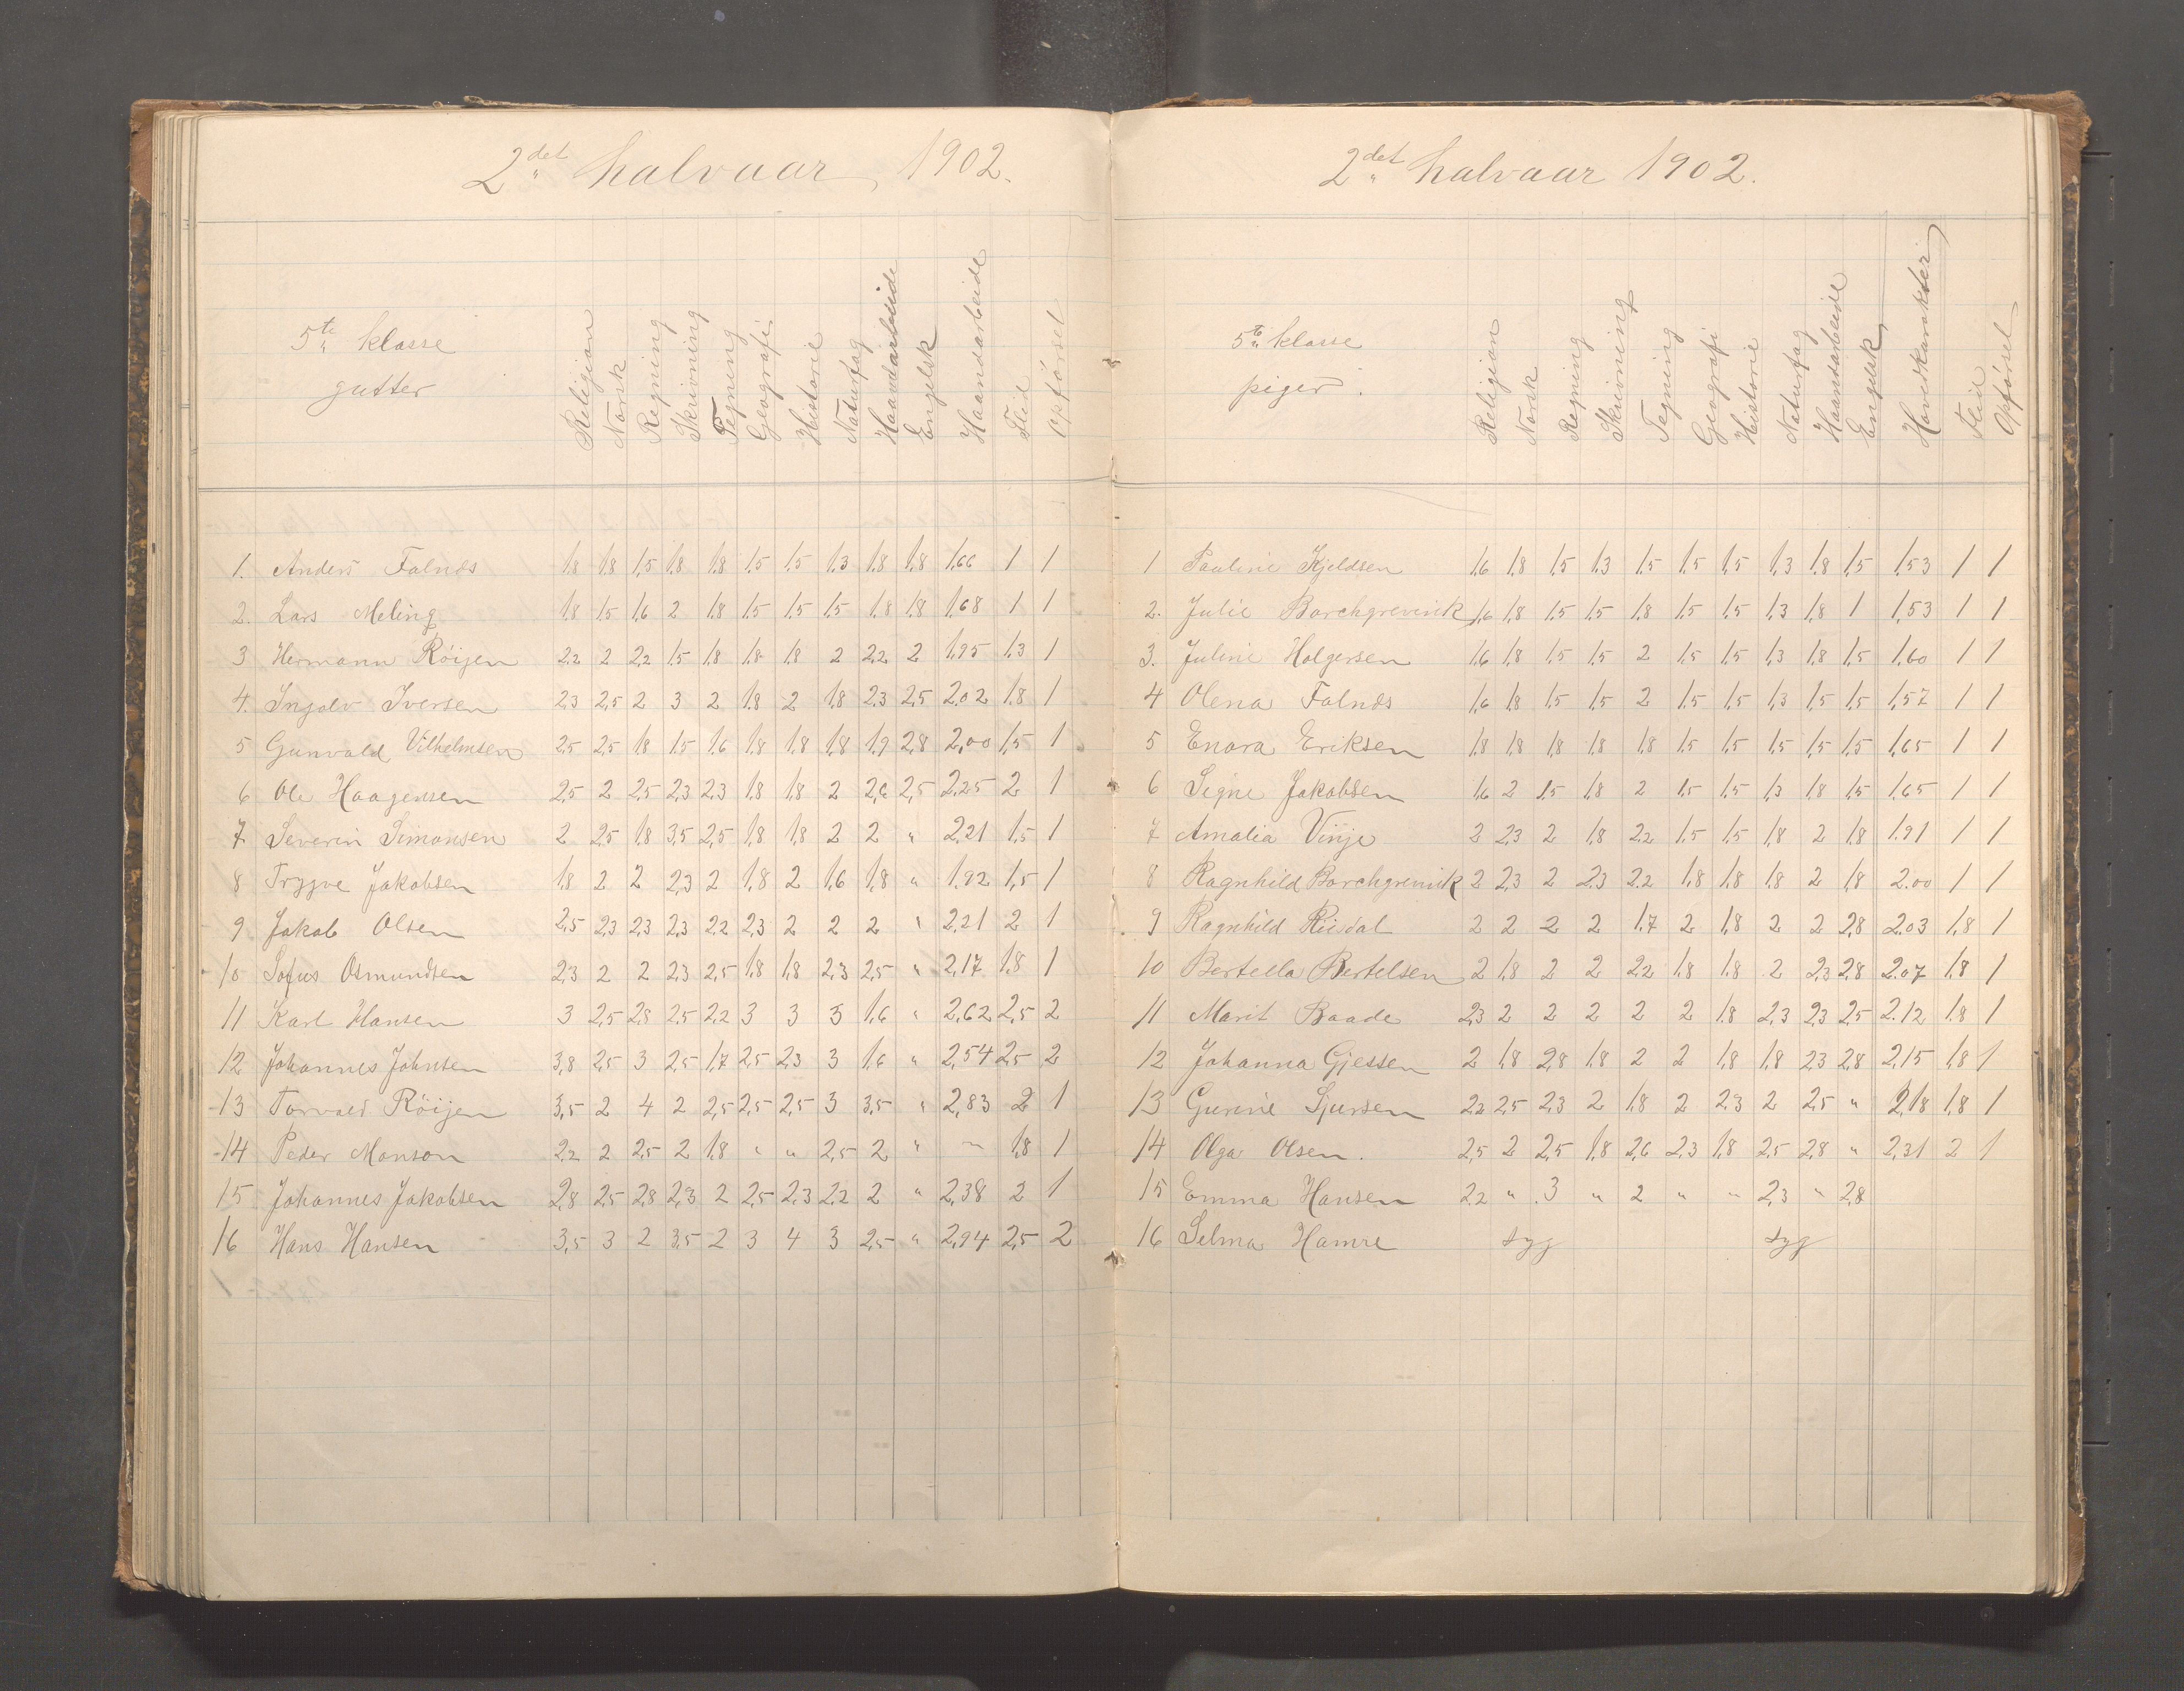 2det halvaar 1902.
5te klasse
gutter
Religion Norsk Regning Skrivning Tegning Geografi Historie Naturfag Haandarbeide Engelsk Haandarbeide Flid Opførsel
1. Anders Falnæs 1,8 1,8 1,5 1,8 1,8 1,5 1,5 1,3 1,8 1,8 1,66 1 1
2. Lars Meling 1,8 1,5 1,6 2 1,8 1,5 1,5 1,5 1,8 1,8 1,68 1 1
3 Hermann Röijen 2,2 2 2,2 1,5 1,8 1,8 1,8 2 2,2 2 1,95 1,3 1
4. Ingolv Iversen 2,3 2,5 2 3 2 1,8 2 1,8 2,3 2,5 2,02 1,8 1
5 Gunvald Vilhelmsen 2,5 2,5 1,8 1,5 1,6 1,8 1,8 1,8 1,9 2,8 2,00 1,5 1
6 Ole Haagensen 2,5 2 2,5 2,3 2,3 1,8 1,8 2 2,6 2,5 2,25 2 1
7 Severin Simonsen 2 2,5 1,8 3,5 2,5 1,8 1,8 2 2 " 2,21 1,5 1
8 Trygve Jakobsen 1,8 2 2 2,3 2 1,8 2 1,6 1,8 " 1,92 1,5 1
9 Jakob Olsen 2,5 2,3 2,3 2,3 2,2 2,3 2 2 2 " 2,21 2 1
10 Sofus Osmundsen 2,3 2 2 2,3 2,5 1,8 1,8 2,3 2,5 " 2,17 1,8 1
11 Karl Hansen 3 2,5 2,8 2,5 2,2 3 3 3 1,6 " 2,62 2,5 2
12 Johannes Johnsen 3,8 2,5 3 2,5 1,7 2,5 2,3 3 1,6 " 2,54 2,5 2
13 Torvald Röijen 3,5 2 4 2 2,5 2,5 2,5 3 3,5 " 2,83 2 1
14 Peder Monson 2,2 2 2,5 2 1,8 " " 2,5 2 " " 1,8 1
15 Johannes Jakobsen 2,8 2,5 2,8 2,3 2 2,5 2,3 2,2 2 " 2,38 2 1
16 Hans Hansen 3,5 3 2 3,5 2 3 4 3 2,5 " 2,94 2,5 2
2det halvaar 1902.
5te klasse
piger.
Religion Norsk Regning Skrivning Tegning Geografi Historie Naturfag Haandarbeide Engelsk Hovedkarakter Flid Opførsel
1 Pauline Kjeldsen 1,6 1,8 1,5 1,3 1,5 1,5 1,5 1,3 1,8 1,5 1,53 1 1
2. Julie Borchgrevink 1,6 1,8 1,5 1,5 1,8 1,5 1,5 1,3 1,8 1 1,53 1 1
3. Juline Holgersen 1,6 1,8 1,5 1,5 2 1,5 1,5 1,3 1,8 1,5 1,60 1 1
4 Olena Falnæs 1,6 1,8 1,5 1,5 2 1,5 1,5 1,3 1,5 1,5 1,57 1 1
5 Enora Eriksen 1,8 1,8 1,8 1,8 1,8 1,5 1,5 1,5 1,5 1,5 1,65 1 1
6 Signe Jakobsen 1,6 2 1,5 1,8 2 1,5 1,5 1,3 1,8 1,5 1,65 1 1
7 Amalia Vinje 2 2,3 2 1,8 2,2 1,5 1,5 1,8 2 1,8 1.91 1 1
8 Ragnhild Borchgrevink 2 2,3 2 2,3 2,2 1,8 1,8 1,8 2 1,8 2.00 1 1
9 Ragnhild Risdal 2 2 2 2 1,7 2 1,8 2 2 2,8 2.03 1,8 1
10 Bertella Bertelsen 2 1,8 2 2 2,2 1,8 1,8 2 2,3 2,8 2.07 1,8 1
11 Marit Baade 2,3 2 2 2 2 2 1,8 2,3 2,3 2,5 2.12 1,8 1
12 Johanna Gjessen 2 1,8 2,8 1,8 2 2 1,8 1,8 2,3 2,8 2,15 1,8 1
13 Gurine Sjursen 2,2 2,5 2,3 2 1,8 2 2,3 2 2,5 " 2,18 1,8 1
14 Olga Olsen. 2,5 2 2,5 1,8 2,6 2,3 1,8 2,5 2,8 " 2,31 2 1
15 Emma Hansen 2,2 " 3 " 2 " " 2,3 " 2,8
16 Selma Hamre syg syg